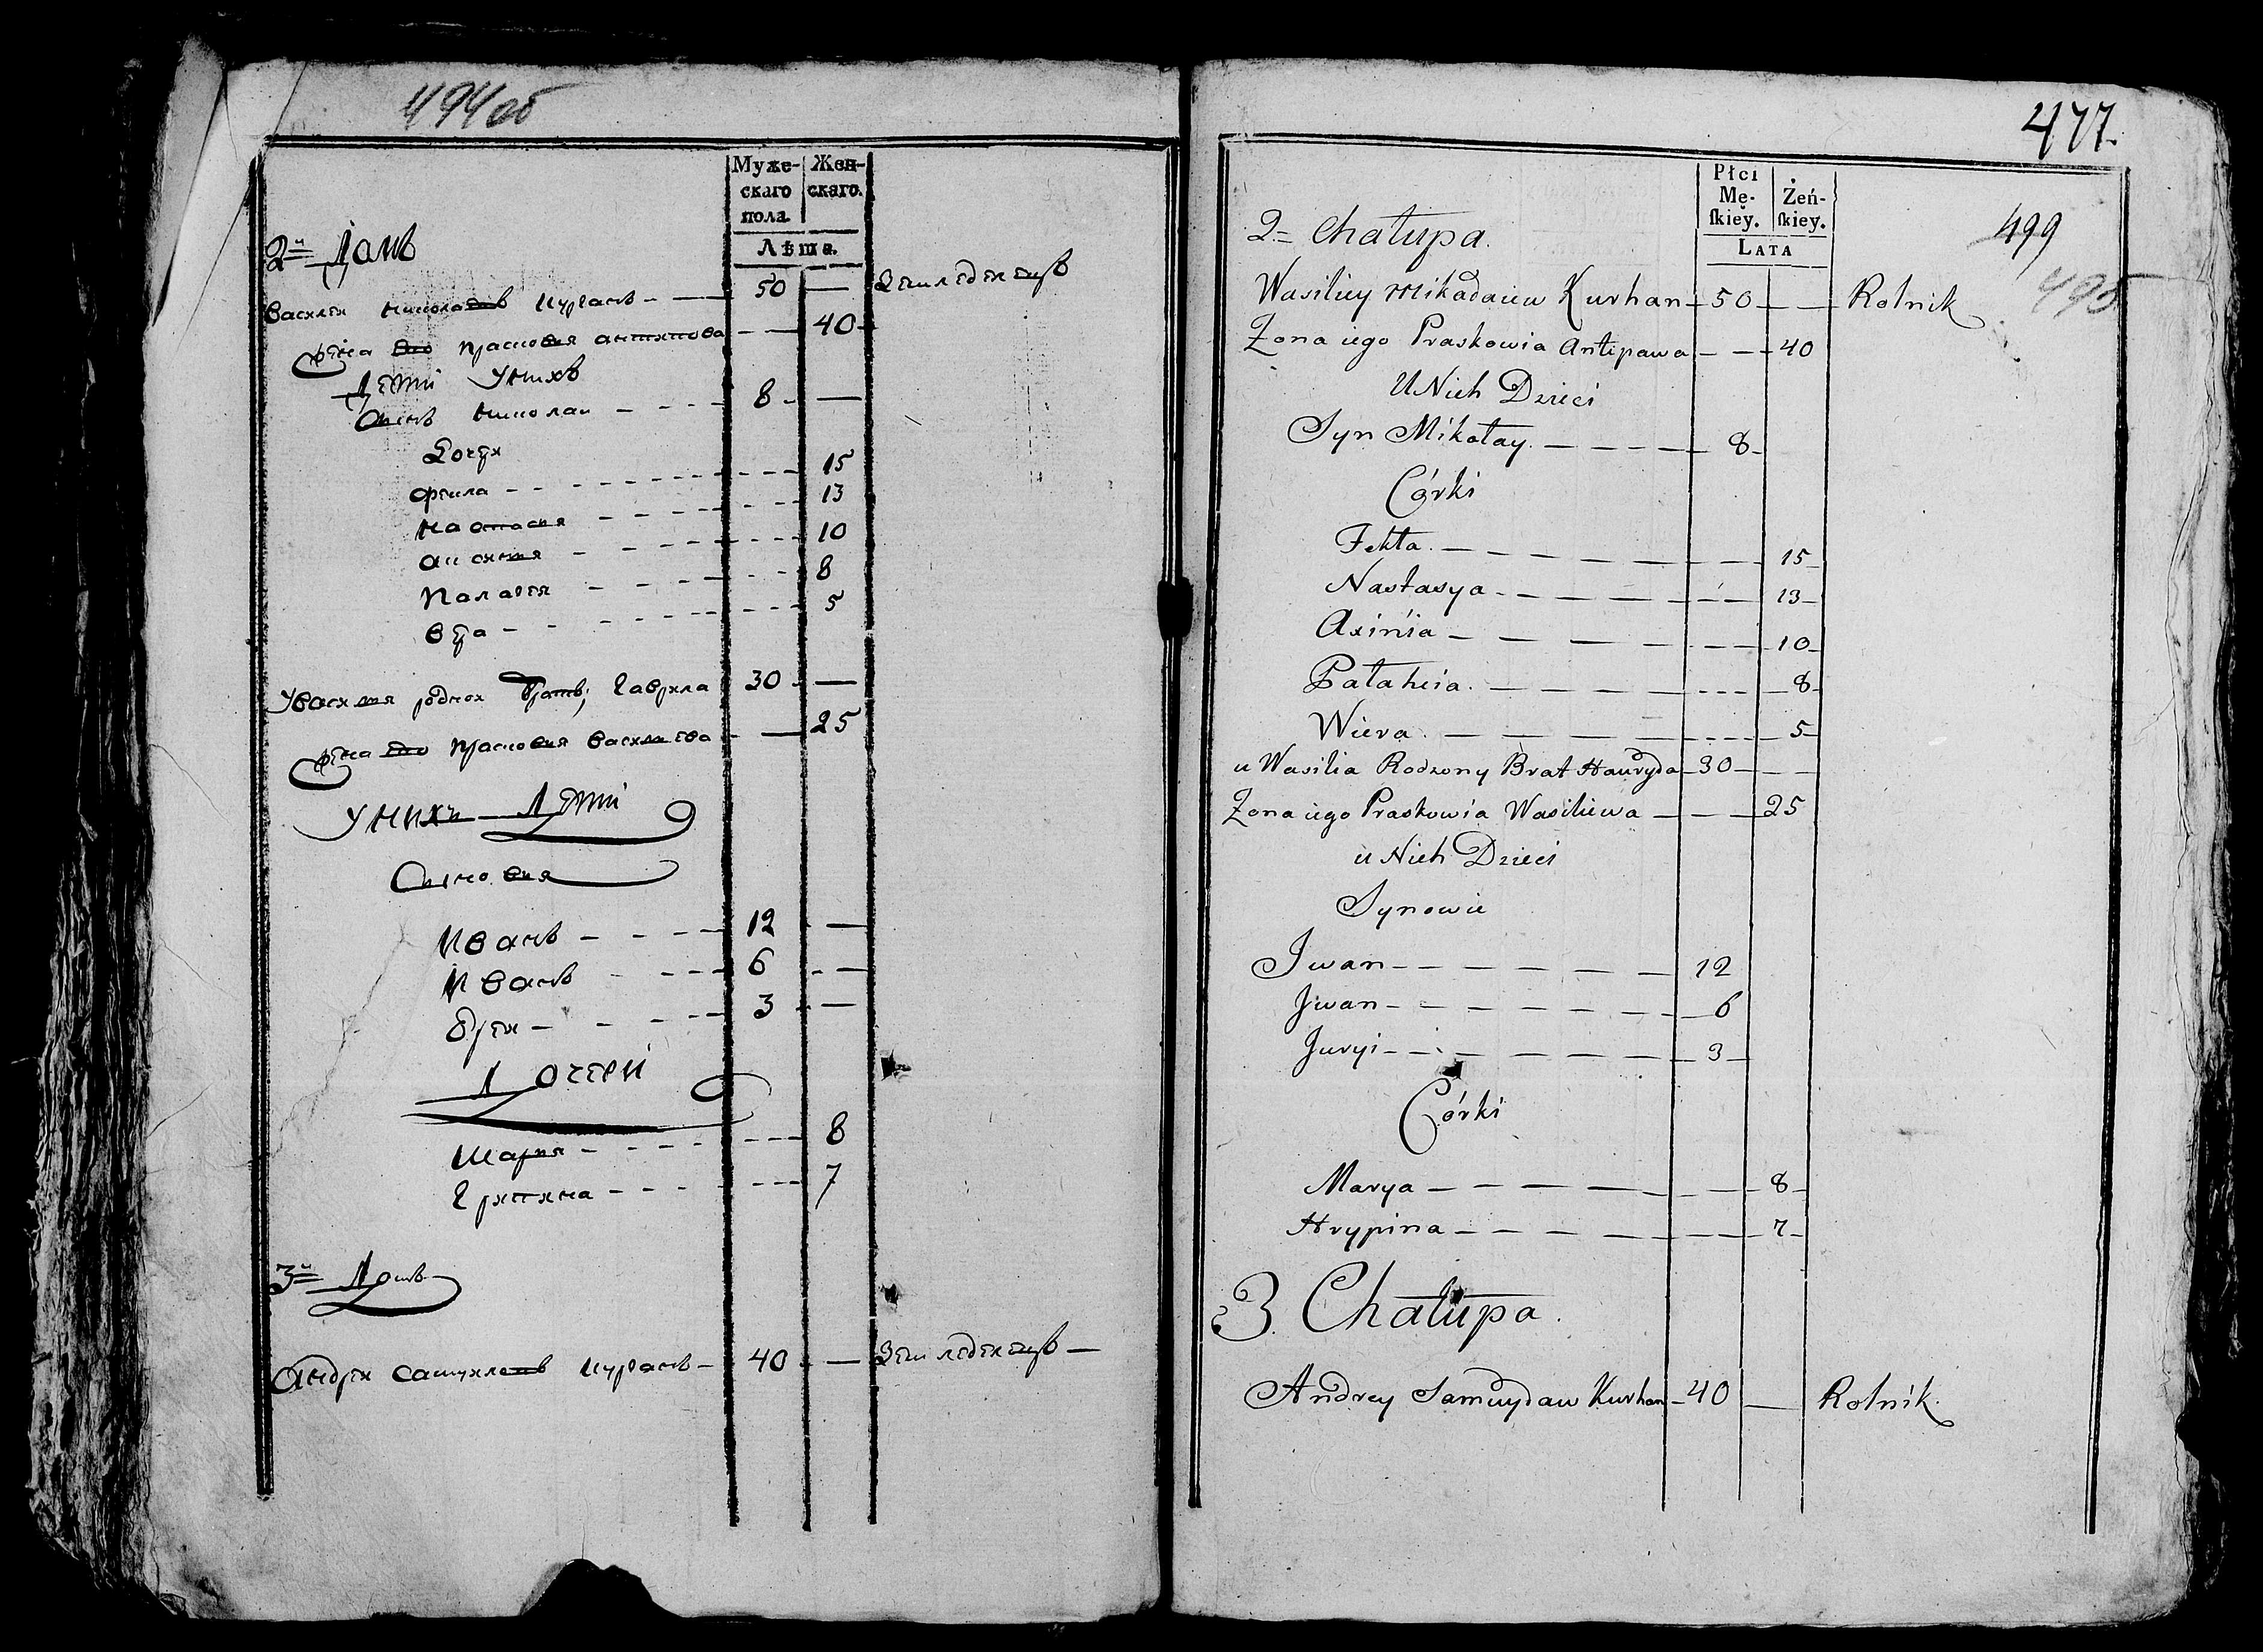 494об
Муже-
скаго
пола
Жен-
скаго.
Лѣта.
2й Домъ
Василеи Николаевъ Курганъ 50 — Земледелецъ
Жена Его Прасковия Антипова — 40
Дети У нихъ
Сынъ Николаи 8 —
Дочери
Фекла 15
Настасия 13
Аксиния 10
Палагея 8
Вера 5
У Василия родной братъ, Гаврила 30 —
Жена Его Прасковия Василиева — 25
У нихъ Дети
Синовия
Иванъ 12 —
Иванъ 6 —
Юреи 3 —
Дочери
Мария 8
Грипина 7
3й Домъ
Андреи Самуиловъ Курганъ 40 — Земледелецъ —
477.
Płci
Mę-
ſkiey.
Żeń-
ſkiey.
LATA
499
495
2 Chałupa.
Wasiliey Mikałaiew Kurhan 50 — Rolnik
Zona iego Praskowia Antipawa — 40
U Nich Dzieci
Syn Mikołay. 8
Córki
Fekła. 15
Nastasya 13
Axińia 10
Pałaheia. 8
Wiera 5
u Wasilia Rodzony Brat Hauryła 30 —
Zona iego Praskowia Wasiliewa — 25
u Nich Dzieci
Synowie
Jwan 12
Jwan 6
Juryi 3
Córki
Marya 8
Hrypina 7
3 Chałupa.
Andrey Samuyław Kurhan 40 — Rolnik.